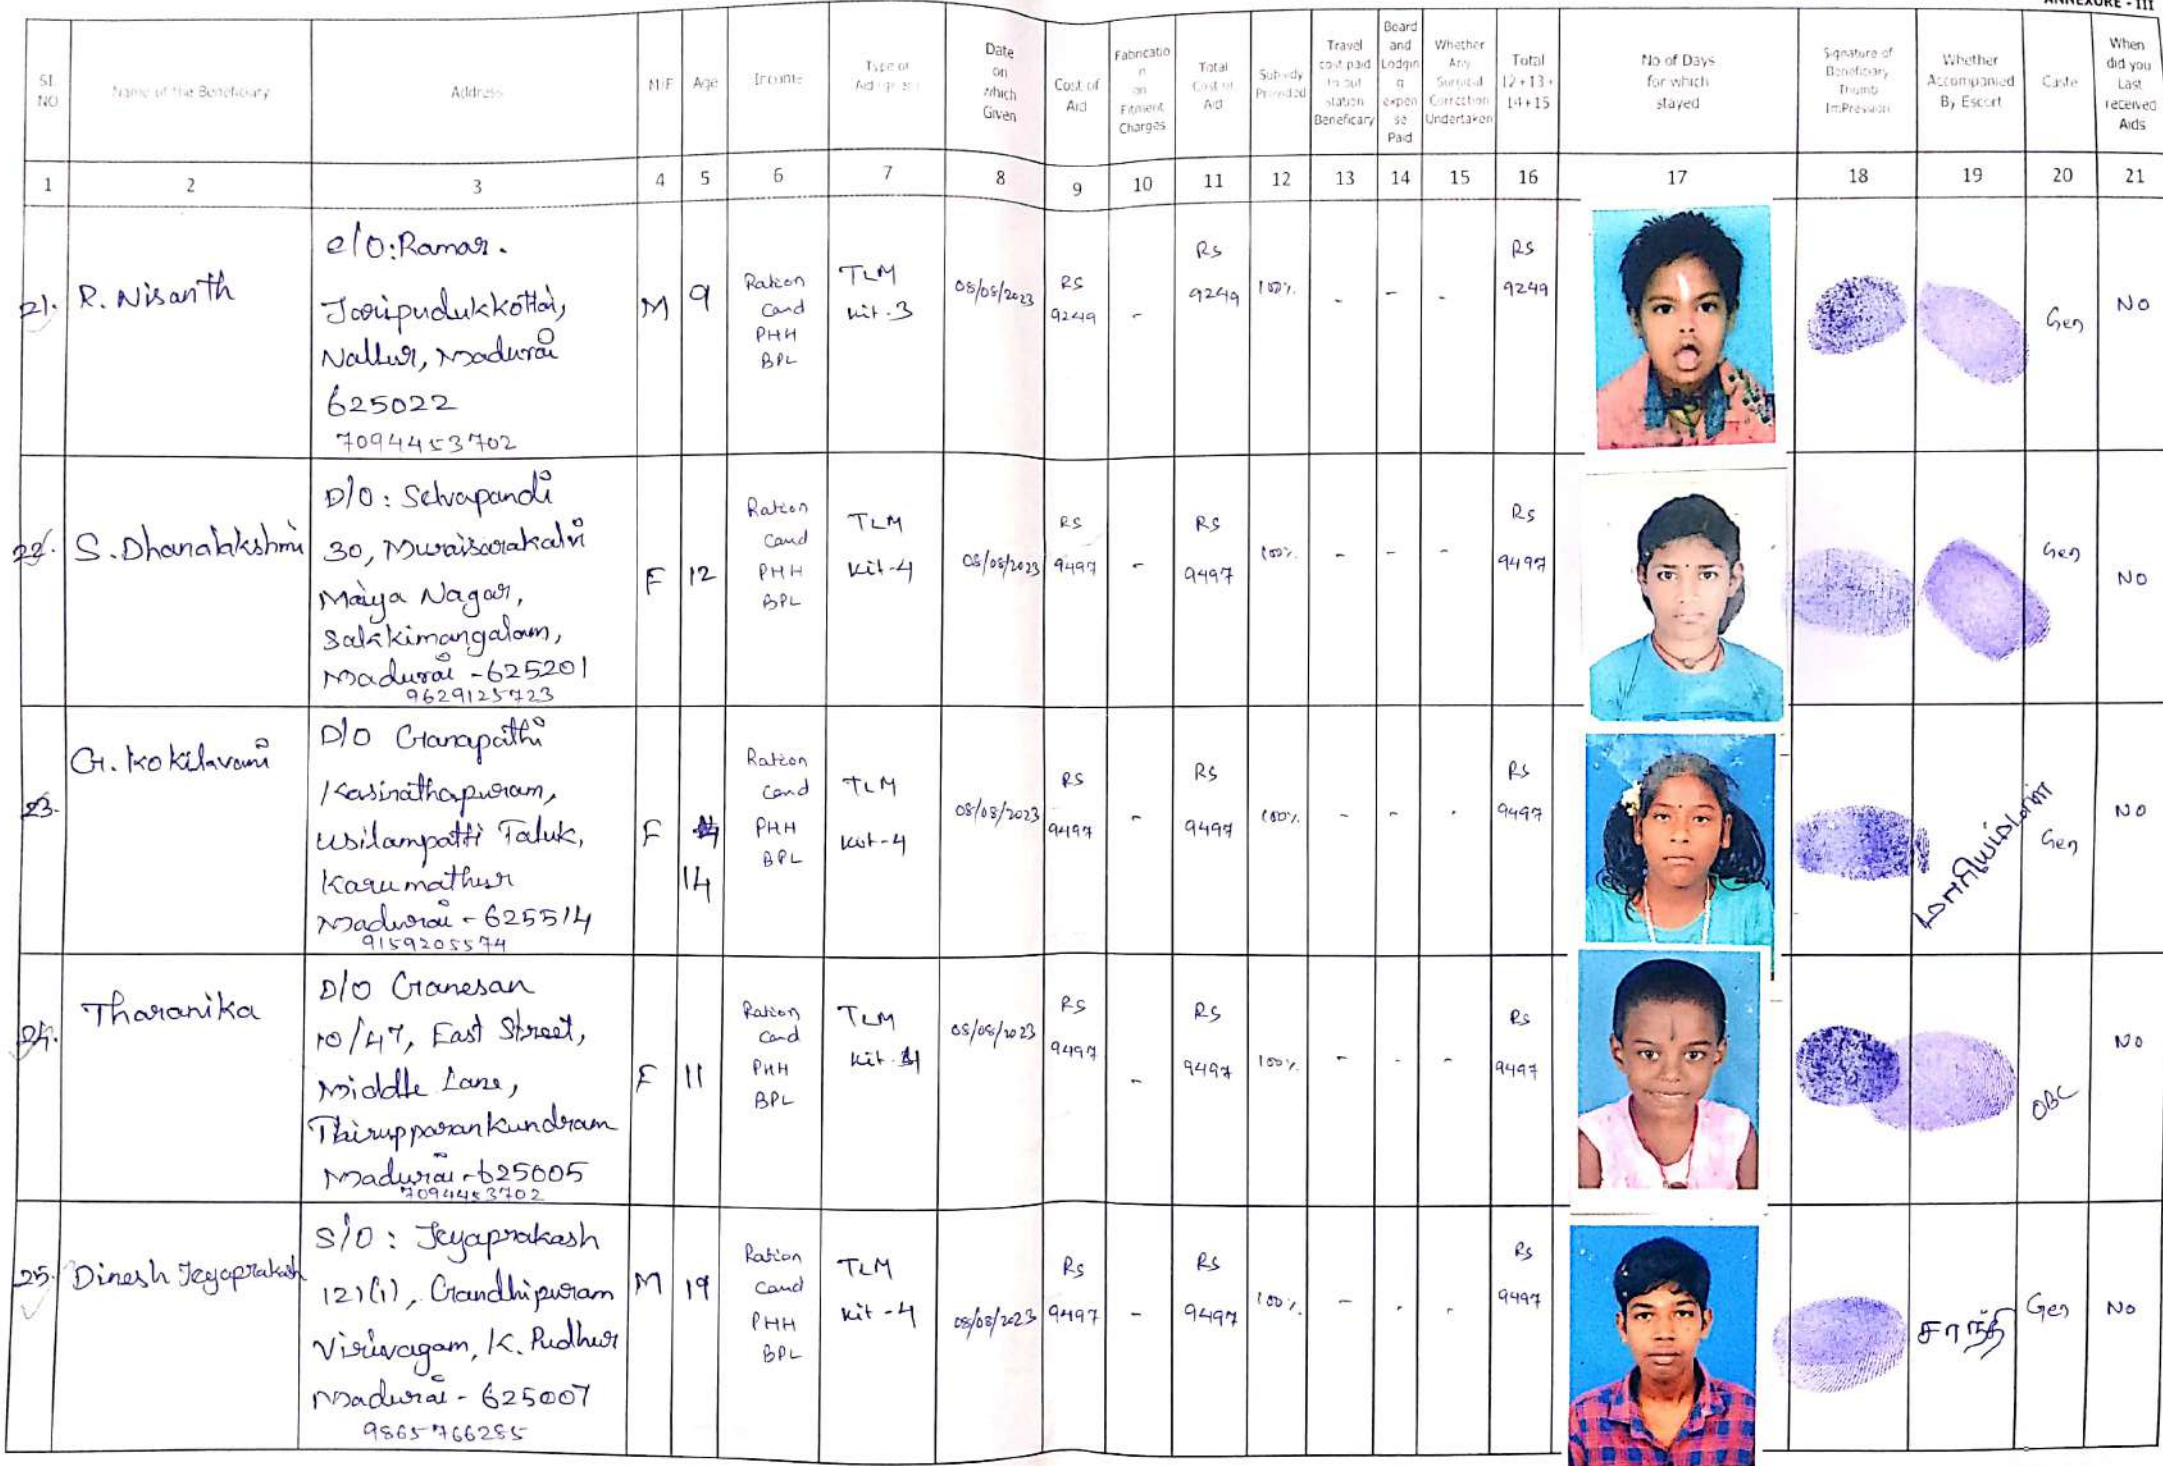 ANNEXURE - III
SI. NO
Name of the Beneficiary
Address
M/F
Age
Income
Type of
Date on which Given
Cost of Aid
Fabrication on Fitment Charges
Total Cost of Aid
Subsidy Provided
Travel cost paid to out station Beneficary
Board and Lodging expense Paid
Whether Any Surgical Correction Undertaken
Total 12+13+14+15
No of Days for which stayed
Signature of Beneficiary Thumb ImPression
Whether Accompanied By Escort
Caste
When did you Last received Aids
1 2 3 4 5 6 7 8 9 10 11 12 13 14 15 16 17 18 19 20 21
21. R. Nisanth
c/o: Ramar.
Nallur, Madurai
625022
7094453702
M 9
Ration Card PHH BPL
TLM Kit-3
08/08/2023
RS 9249
-
RS 9249
100%
- - -
RS 9249
Gen
NO
22. S. Dhanalakshmi
D/O: Selvapandi
30,
Nagar,
Sakkimangalam,
Madurai - 625201
9629125723
F 12
Ration Card PHH BPL
TLM Kit-4
08/08/2023
RS 9497
-
RS 9497
100%
- - -
RS 9497
Gen
NO
23. G. Kokilavani
D/O Ganapathi
Kasinathapuram,
Usilampatti Taluk,
Karumathur
Madurai - 625514
9159205574
F 14
Ration Card PHH BPL
TLM Kit-4
08/08/2023
RS 9497
-
RS 9497
100%
- - -
RS 9497
Gen
NO
24. Tharanika
D/O Ganesan
10/47, East Street,
Middle Lane,
Thirupparankundram
Madurai - 625005
7094453702
F 11
Ration Card PHH BPL
TLM Kit-4
08/08/2023
RS 9497
-
RS 9497
100%
- - -
RS 9497
OBC
NO
25. Dinesh Jeyaprakash
S/O: Jeyaprakash
121(1), Gandhipuram
K. Pudhur
Madurai - 625007
9865766285
M 19
Ration Card PHH BPL
TLM Kit-4
08/08/2023
RS 9497
-
RS 9497
100%
- - -
RS 9497
சாந்தி
Gen
NO